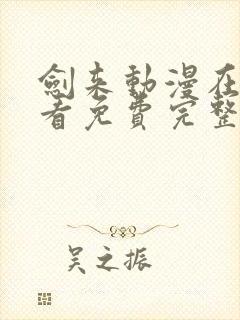 劍来動漫在
看免費完整
吴之振